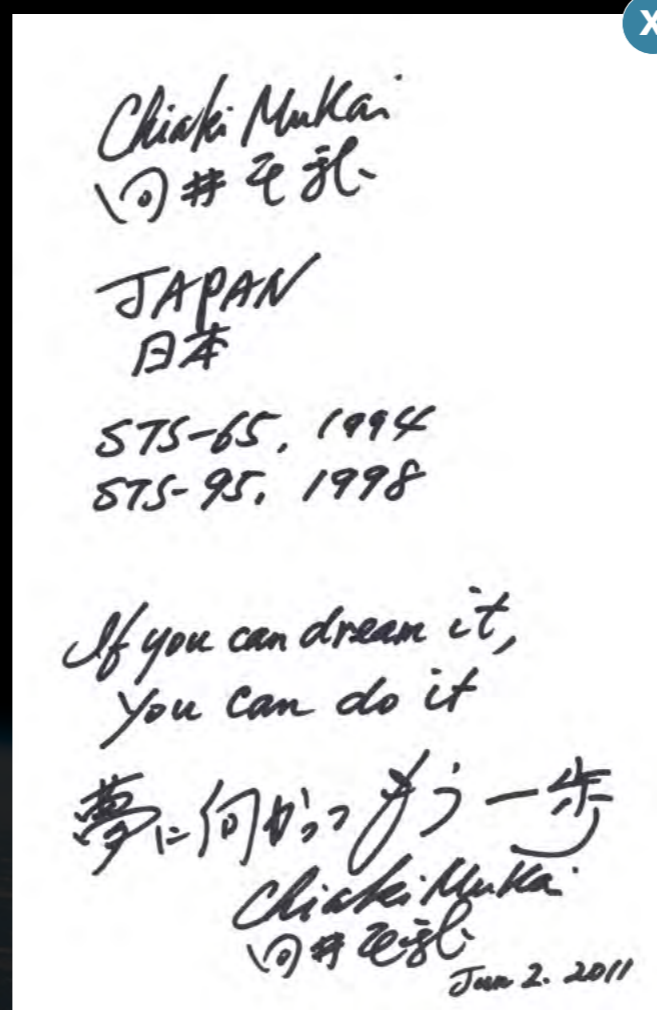 X
Chiaki Mukai
向井千秋
JAPAN
日本
STS-65, 1994
STS-95, 1998
If you can dream it,
you can do it
夢に向かってもう一歩
Chiaki Mukai
向井千秋
Jun 2. 2011